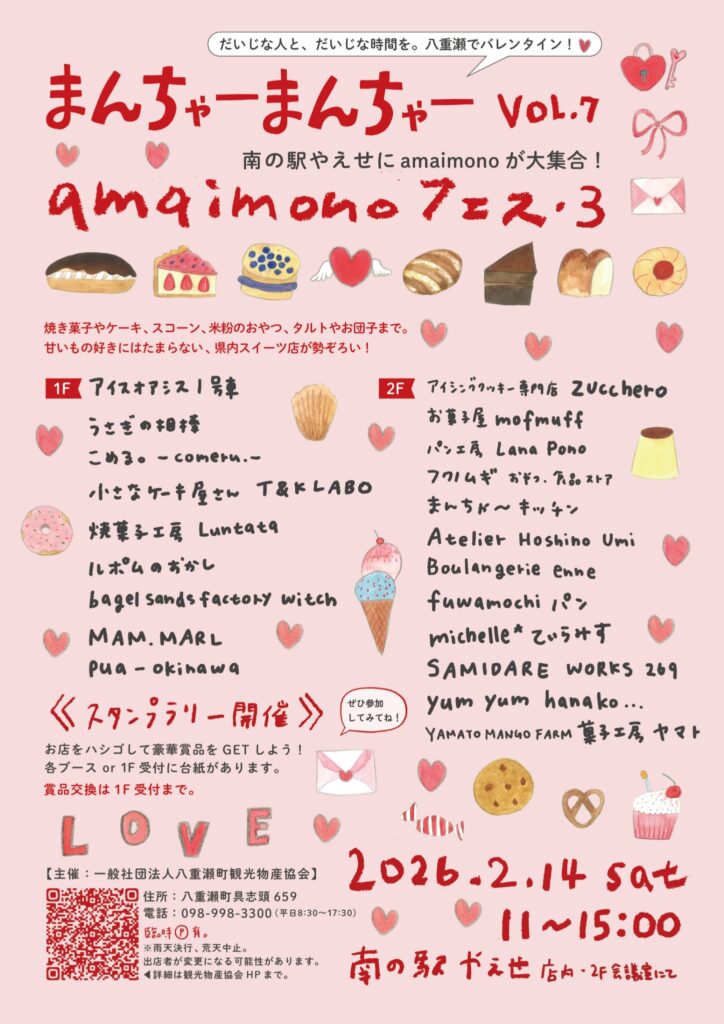 だいじな人と、だいじな時間を。八重瀬でバレンタイン！
まんちゃーまんちゃー VOL.7
南の駅やえせにamaimonoが大集合！
amaimonoフェス・3
焼き菓子やケーキ、スコーン、米粉のおやつ、タルトやお団子まで。
甘いもの好きにはたまらない、県内スイーツ店が勢ぞろい！
1F アイスオアシス1号車
うさぎの相棒
こめる。-comeru.-
小さなケーキ屋さん T&K LABO
焼菓子工房 Luntata
ルポムのおかし
bagel sands factory witch
MAM.MARL
pua-okinawa
2F アイシングクッキー専門店 zucchero
お菓子屋 mofmuff
パン工房 Lana Pono
フクノムギ おやつ、食品ストア
まんちゃ〜キッチン
Atelier Hoshino Umi
Boulangerie enne
fuwamochi パン
michelle* てぃうみす
SAMIDARE WORKS 269
yum yum hanako...
YAMATO MANGO FARM 菓子工房 ヤマト
《スタンプラリー開催》
ぜひ参加
してみてね！
お店をハシゴして豪華賞品をGETしよう！
各ブース or 1F 受付に台紙があります。
賞品交換は1F受付まで。
LOVE
【主催：一般社団法人八重瀬町観光物産協会】
住所：八重瀬町具志頭 659
電話：098-998-3300（平日8:30〜17:30）
臨時Ⓟ有。
※雨天決行、荒天中止。
出店者が変更になる可能性があります。
◀詳細は観光物産協会HPまで。
2026.2.14 sat
11〜15:00
南の駅やえせ 店内・2F会議室にて